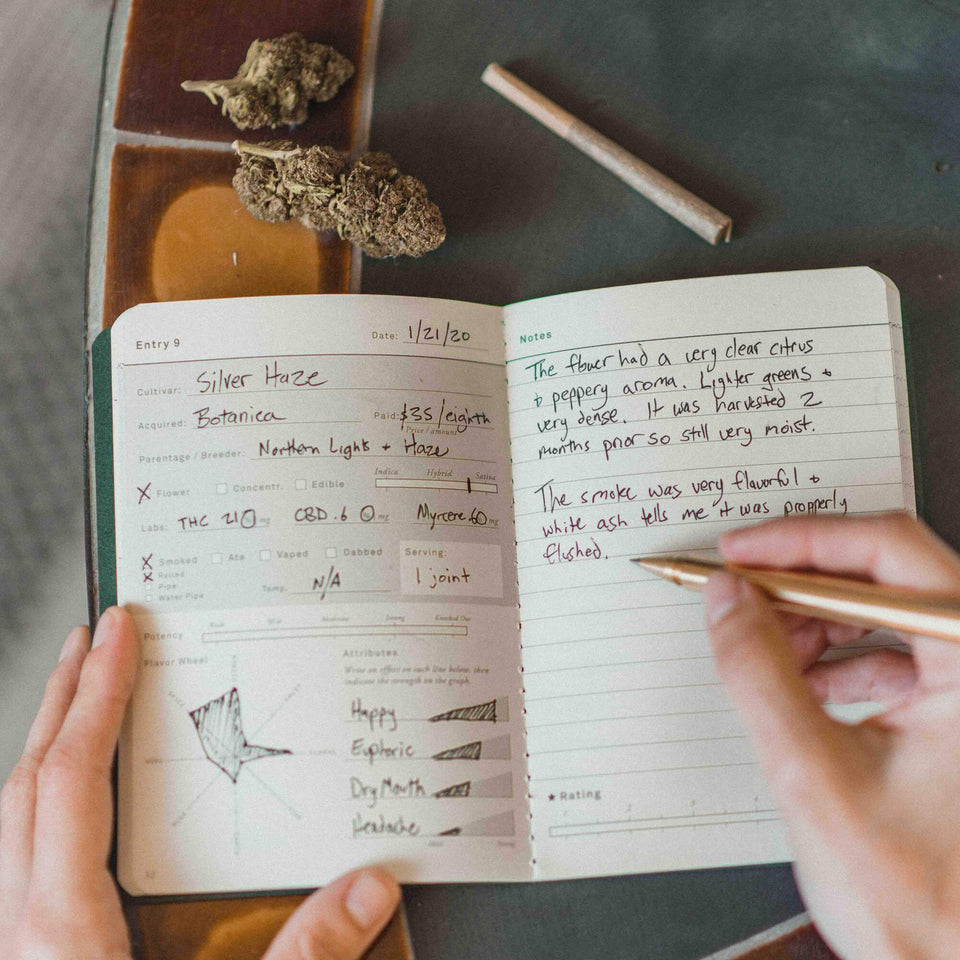 Entry 9
Date: 1/21/20
Cultivar: Silver Haze
Acquired: Botanica
Paid: $35/eighth
Price / amount
Parentage / Breeder: Northern Lights + Haze
X Flower Concentr. Edible
Indica Hybrid Sativa
Labs: THC 210 mg CBD .6 mg Myrcene .60 mg
X Smoked Ate Vaped Dabbed
X Rolled
Pipe
Water Pipe
Temp. N/A
Serving:
1 joint
Potency
Mild Moderate Strong Knocked Out
Flavor Wheel
Attributes
Write an effect on each line below, then
indicate the strength on the graph.
Happy
Euphoric
Dry Mouth
Headache
Strong
12
Notes
The flower had a very clear citrus
+ peppery aroma. Lighter greens +
very dense. It was harvested 2
months prior so still very moist.
The smoke was very flavorful +
white ash tells me it was propperly
flushed.
★ Rating